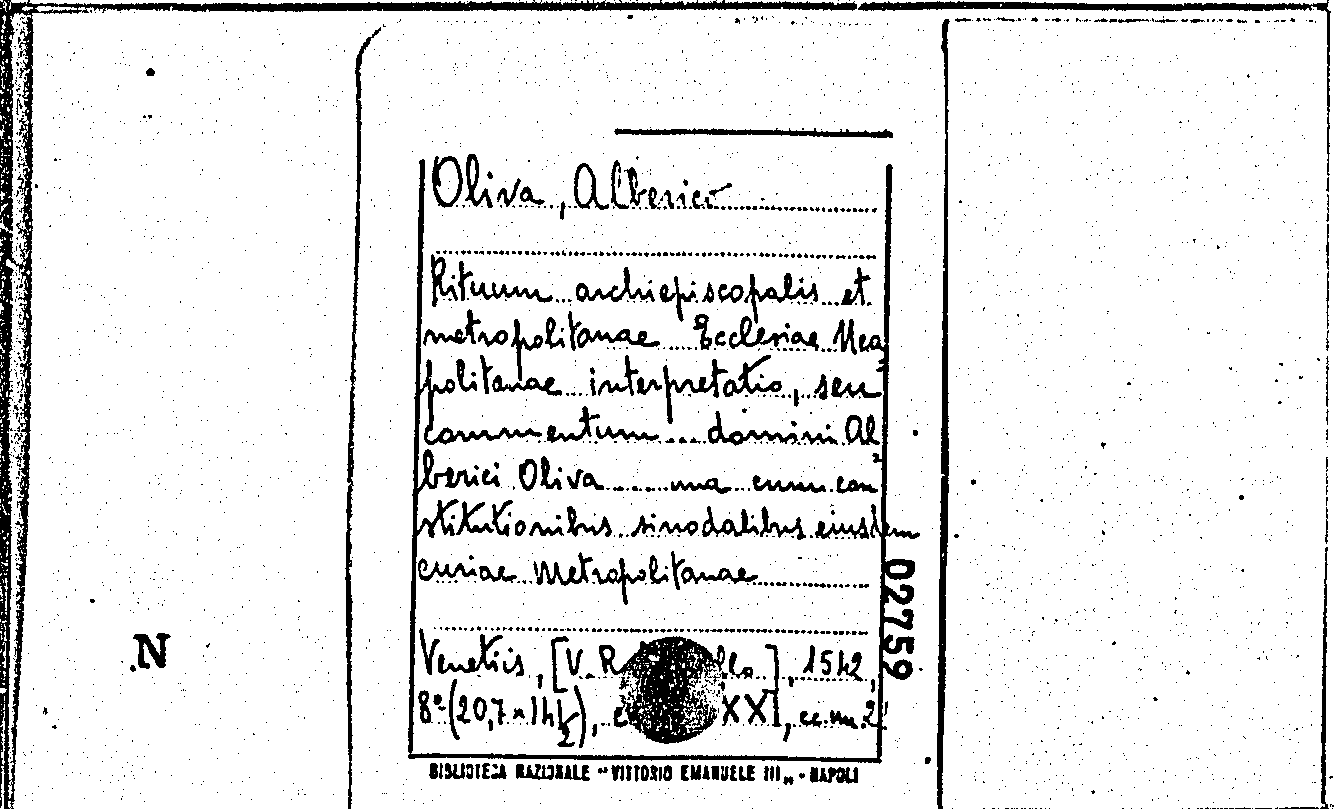 Oliva, Alberico
Rituum archiepiscopalis et
metropolitanae Ecclesiae Nea
politanae interpretatio, seu
commentum ... domini Al
berici Oliva .... una cum con
stitutionibus sinodalibus eiusdem
curiae Metropolitanae
02759
N
Venetiis, [V. R
], 1542,
8° (20,7 x 14
XX], cc.nn. 2
BIBLIOTECA NAZIONALE "VITTORIO EMANUELE III„ - NAPOLI